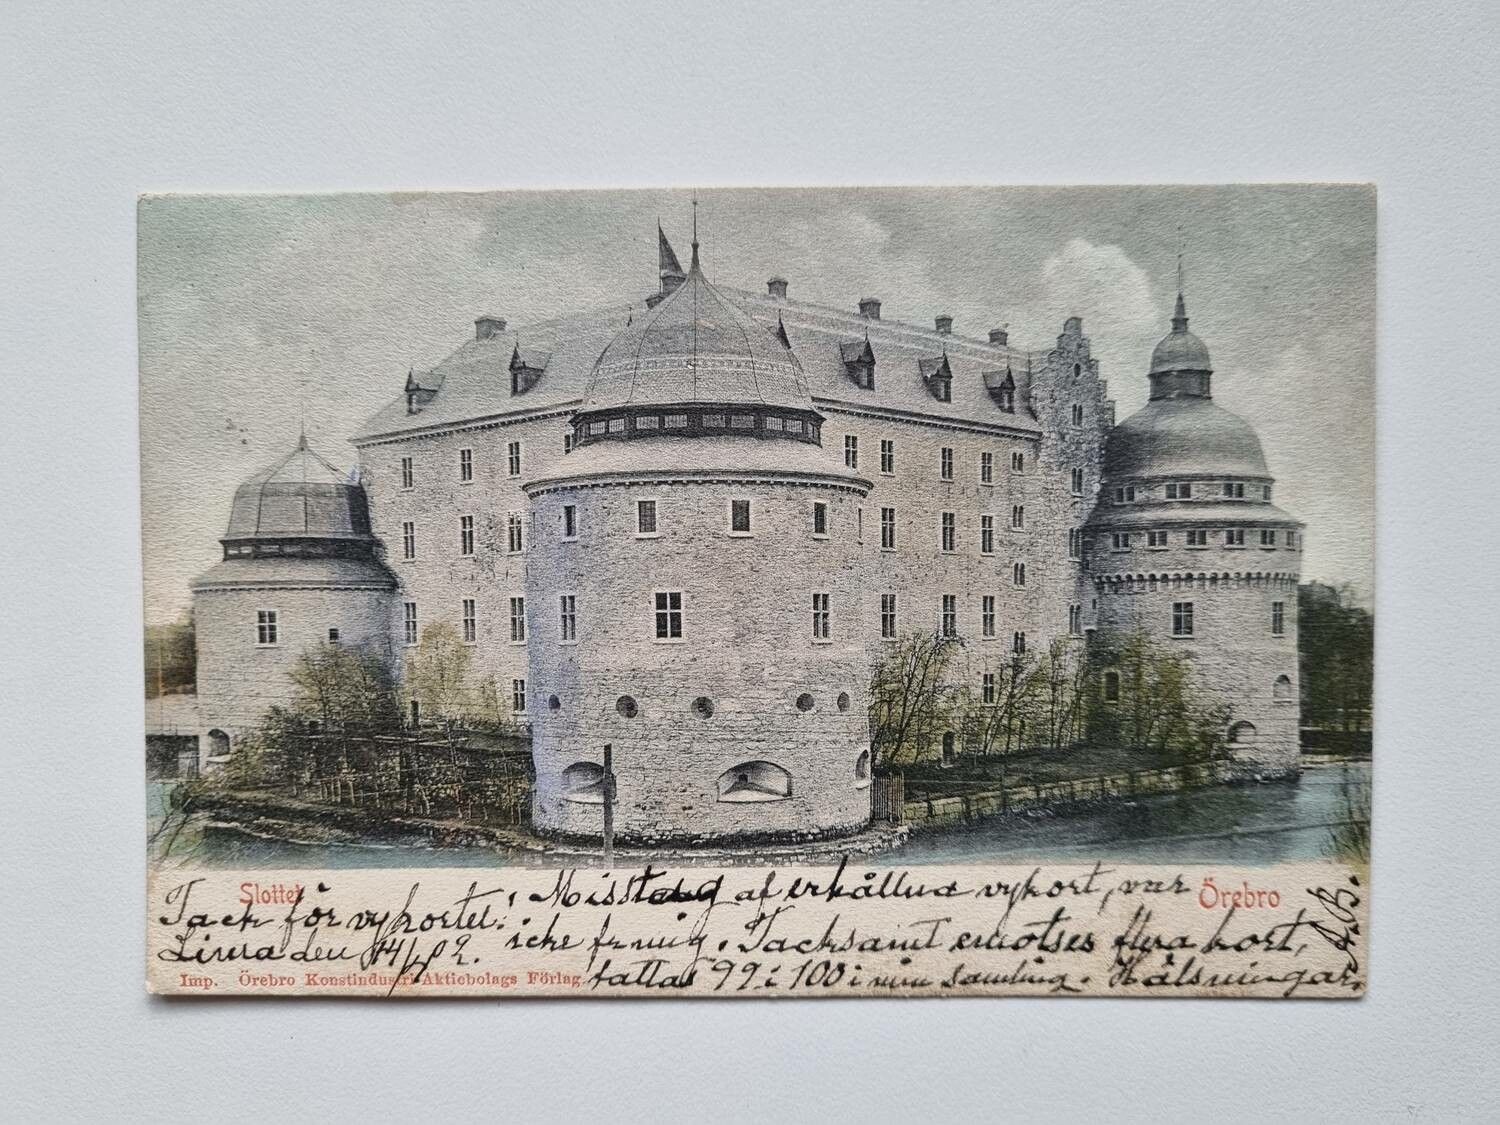 Slottet
Örebro
Tack för vykortet! Misstag af erhållna vykort, var
Linra den 14/1 02. icke fr mig. Tacksamt emotses flera kort,
fattas 99 i 100 i min samling. Hälsningar.
A.B.
Imp. Örebro Konstindustri-Aktiebolags Förlag.